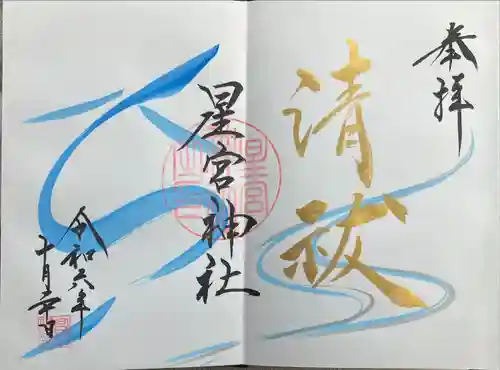 奉拝
清祓
星宮神社
令和六年
十月二十日